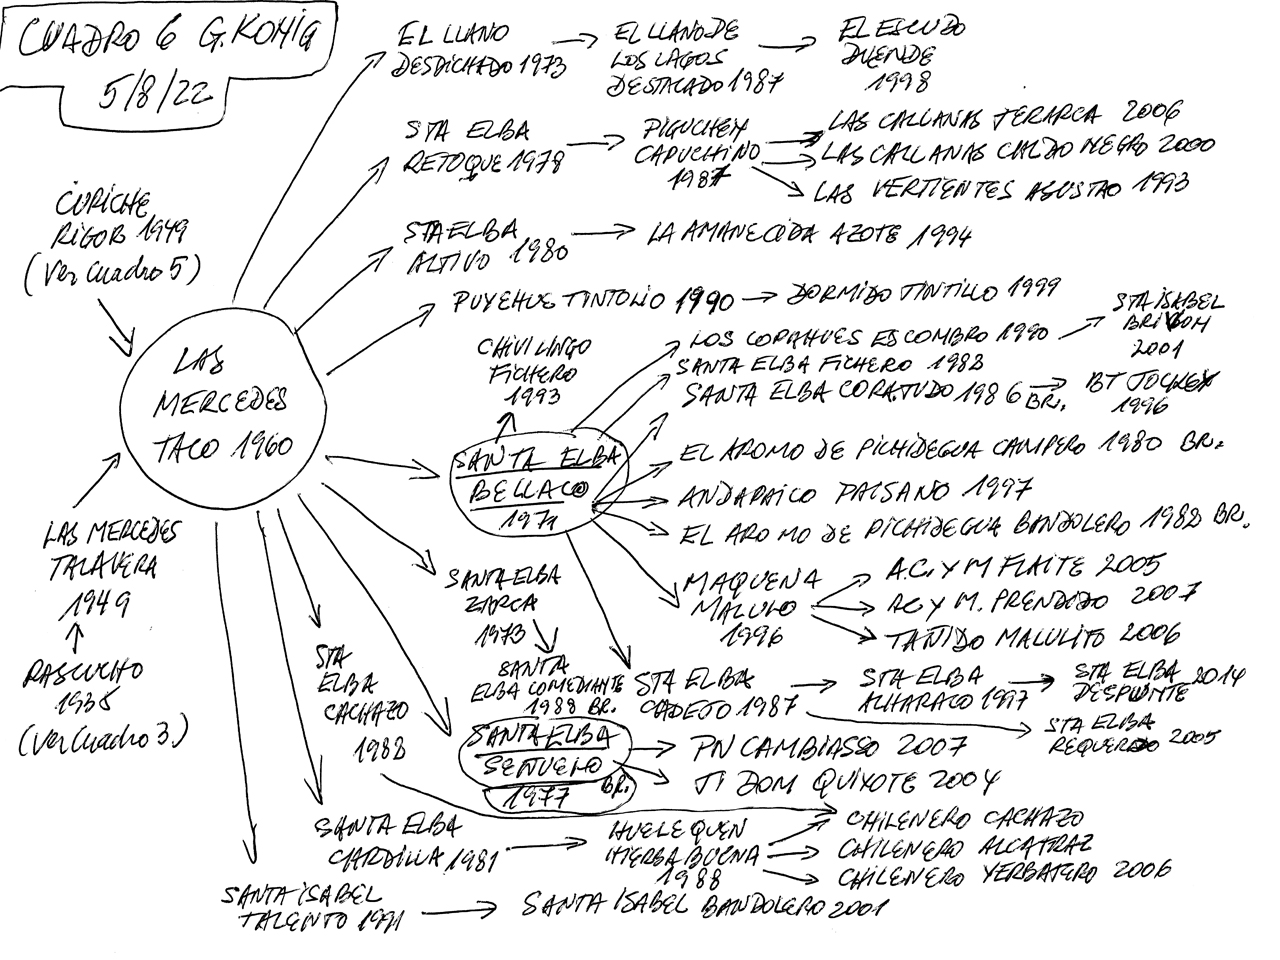 CUADRO 6 G. KONIG
5/8/22
EL LLANO
DESDICHADO 1973
EL LLANO DE
LOS LAGOS
DESTACADO 1987
EL ESCUDO
DUENDE
1998
STA ELBA
RETOQUE 1978
PIGUCHEN
CAPUCHINO
1987
LAS CALLANAS JERARCA 2006
LAS CALLANAS CALDO NEGRO 2000
LAS VERTIENTES AGUSTAO 1993
CURICHE
RIGOR 1949
(Ver Cuadro 5)
STA ELBA
ALTIVO 1980
LA AMANECIDA AZOTE 1994
PUYEHUE TINTOLIO 1990
DORMIDO TINTILLO 1999
LAS
MERCEDES
TACO 1960
CHIVILINGO
FICHERO
1993
LOS COPAHUES ESCOMBRO 1990
STA ISABEL
2001
SANTA ELBA FICHERO 1988
SANTA ELBA CORAJUDO 1986 BR.
BT JOCKEY
1996
SANTA ELBA
BELLACO
1971
EL AROMO DE PICHIDEGUA CAMPERO 1980 BR.
ANDAPAICO PAISANO 1997
EL AROMO DE PICHIDEGUA BANDOLERO 1988 BR.
LAS MERCEDES
TALAVERA
1949
RASCUCHO
1935
(Ver Cuadro 3.)
SANTA ELBA
ZARCA
1973
MAQUENA
MALULO
1996
A.C. Y M FLAITE 2005
AC Y M. PRENDIDO 2007
TAÑIDO MALULITO 2006
STA
ELBA
CACHAZO
1988
SANTA
ELBA COMEDIANTE
1988 BR.
STA ELBA
CADEJO 1987
STA ELBA
ALHARACO 1997
STA ELBA 2014
DESPUNTE
STA ELBA
2005
SANTA ELBA
SEÑUELO
1977 BR.
PN CAMBIASSO 2007
JI DOM QUIXOTE 2004
SANTA ELBA
CARDILLA 1981
HUELEQUEN
HIERBA BUENA
1988
CHILENERO CACHAZO
CHILENERO ALCATRAZ
CHILENERO YERBATERO 2006
SANTA ISABEL
TALENTO 1991
SANTA ISABEL BANDOLERO 2001